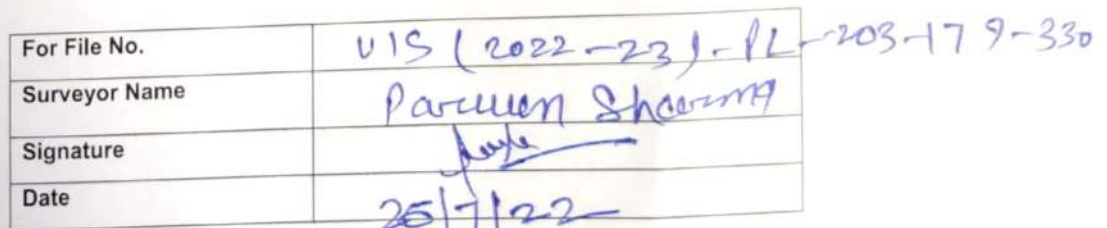 For File No. VIS (2022-23)-PL-203-179-330
Surveyor Name Parveen Sharma
Signature
Date 25/7/22